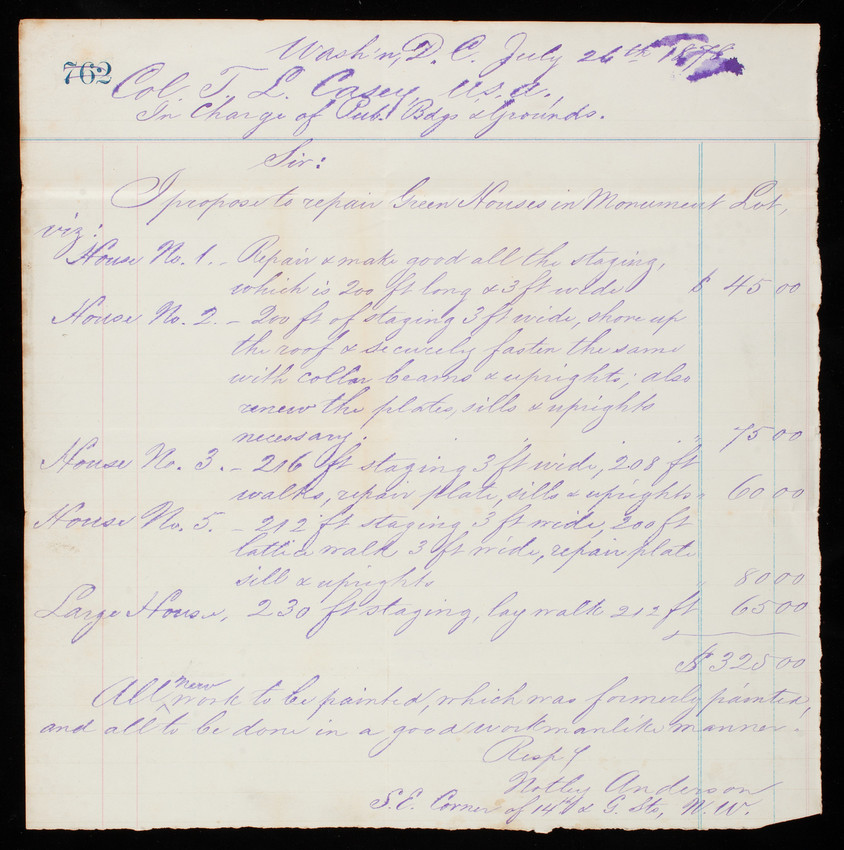 Wash'n, D. C. July 26th 1878
762
Col. T. L. Casey, U.S.A.,
In Charge of Pub. Bdgs & Grounds.
Sir:
I propose to repair Green Houses in Monument Lot,
viz:
House No. 1. - Repair & make good all the staging,
which is 200 ft long & 3 ft wide $ 45 00
House No. 2. - 200 ft of staging 3 ft wide, shore up
the roof & securely fasten the same
with collar beams & uprights; also
renew the plates, sills & uprights
necessary. " 75 00
House No. 3. - 216 ft staging 3 ft wide, 208 ft
walks, repair plate, sills & uprights " 60 00
House No. 5. - 212 ft staging 3 ft wide, 200 ft
lattice walk 3 ft wide, repair plate
sill & uprights " 80 00
Large House, 230 ft staging, lay walk 212 ft 65 00
$ 325 00
All new work to be painted, which was formerly painted,
and all to be done in a good workmanlike manner.
Resp'y
Notley Anderson
S.E. Corner of 14th & G. Sts, N.W.